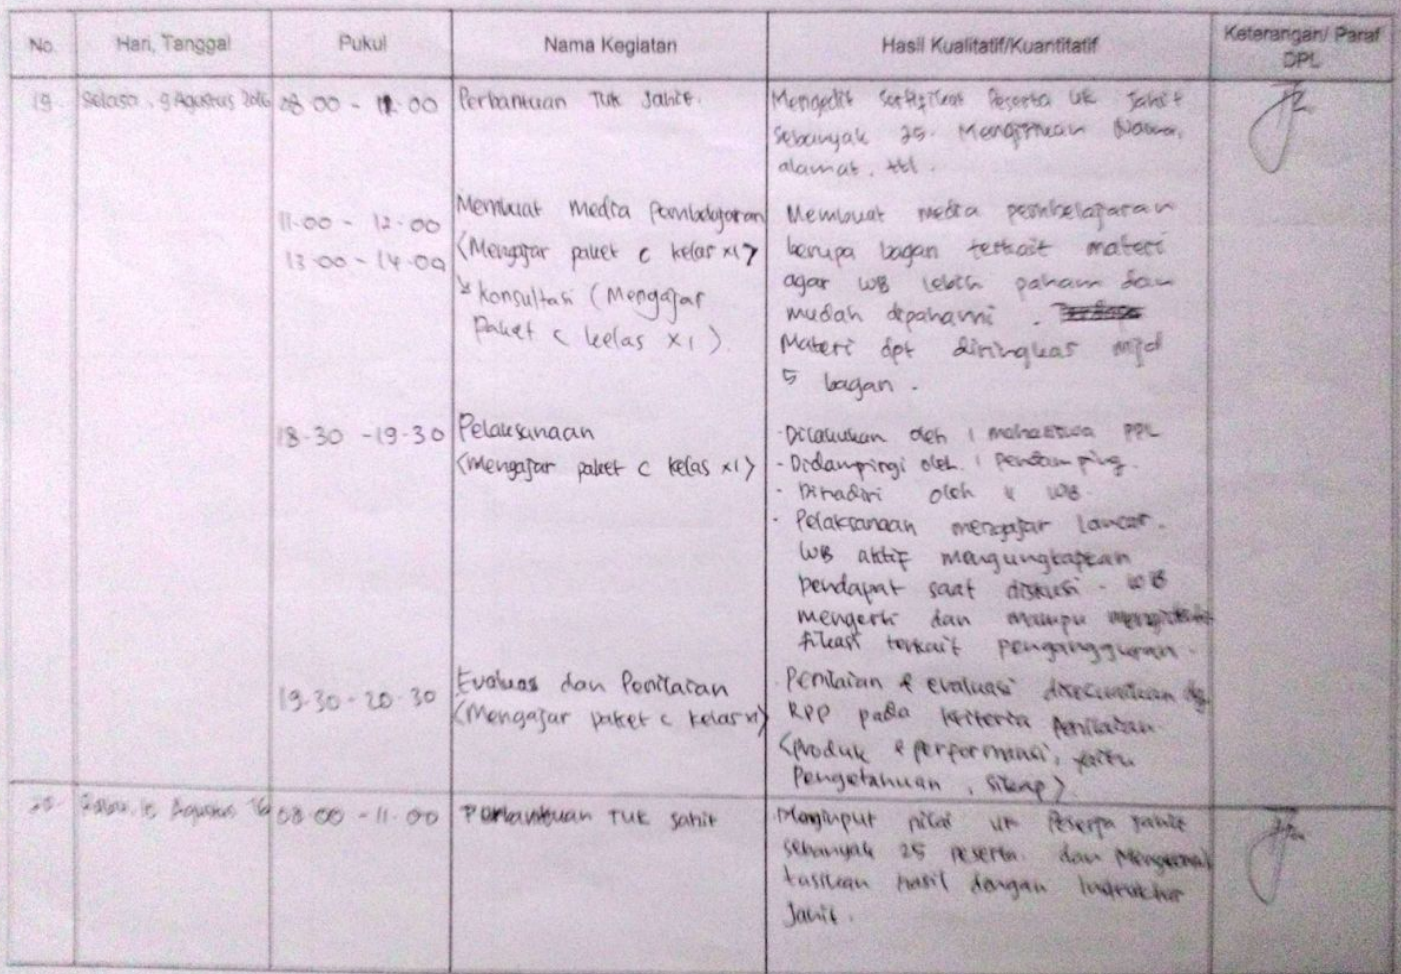 No.
Hari, Tanggal
Pukul
Nama Kegiatan
Hasil Kualitatif/Kuantitatif
Keterangan/ Paraf
DPL
19
Selasa, 9 Agustus 2016
08.00 - 11.00
Perbantuan TUK Jahit.
Mengedit sertifikat Peserta UK Jahit
sebanyak 25. Mengisikan Nama,
alamat, ttl.
11.00 - 12.00
13.00 - 14.00
Membuat media Pembelajaran
(Mengajar paket C kelas XI)
Konsultasi (Mengajar
Paket C kelas XI).
Membuat media pembelajaran
berupa bagan terkait materi
agar WB lebih paham dan
mudah dipahami.
Materi dpt diringkas mjd
5 bagan.
18.30 - 19.30
Pelaksanaan
(Mengajar paket C kelas XI)
- Dilakukan oleh 1 mahasiswa PPL
- Didampingi oleh 1 pendamping.
- Dihadiri oleh WB.
- Pelaksanaan mengajar lancar.
WB aktif mengungkapkan
pendapat saat diskusi - WB
mengerti dan mampu
fikasi terkait pengangguran.
19.30 - 20.30
Evaluasi dan Penilaian
(Mengajar paket C kelas XI)
Penilaian & evaluasi disesuaikan dg
RPP pada kriteria Penilaian.
(produk & performansi, yaitu
Pengetahuan, sikap)
20
Rabu, 10 Agustus 16
08.00 - 11.00
Perbantuan TUK Jahit
Menginput nilai UK Peserta Jahit
sebanyak 25 peserta. dan Mengkonsul
tasikan hasil dengan Instruktur
Jahit.